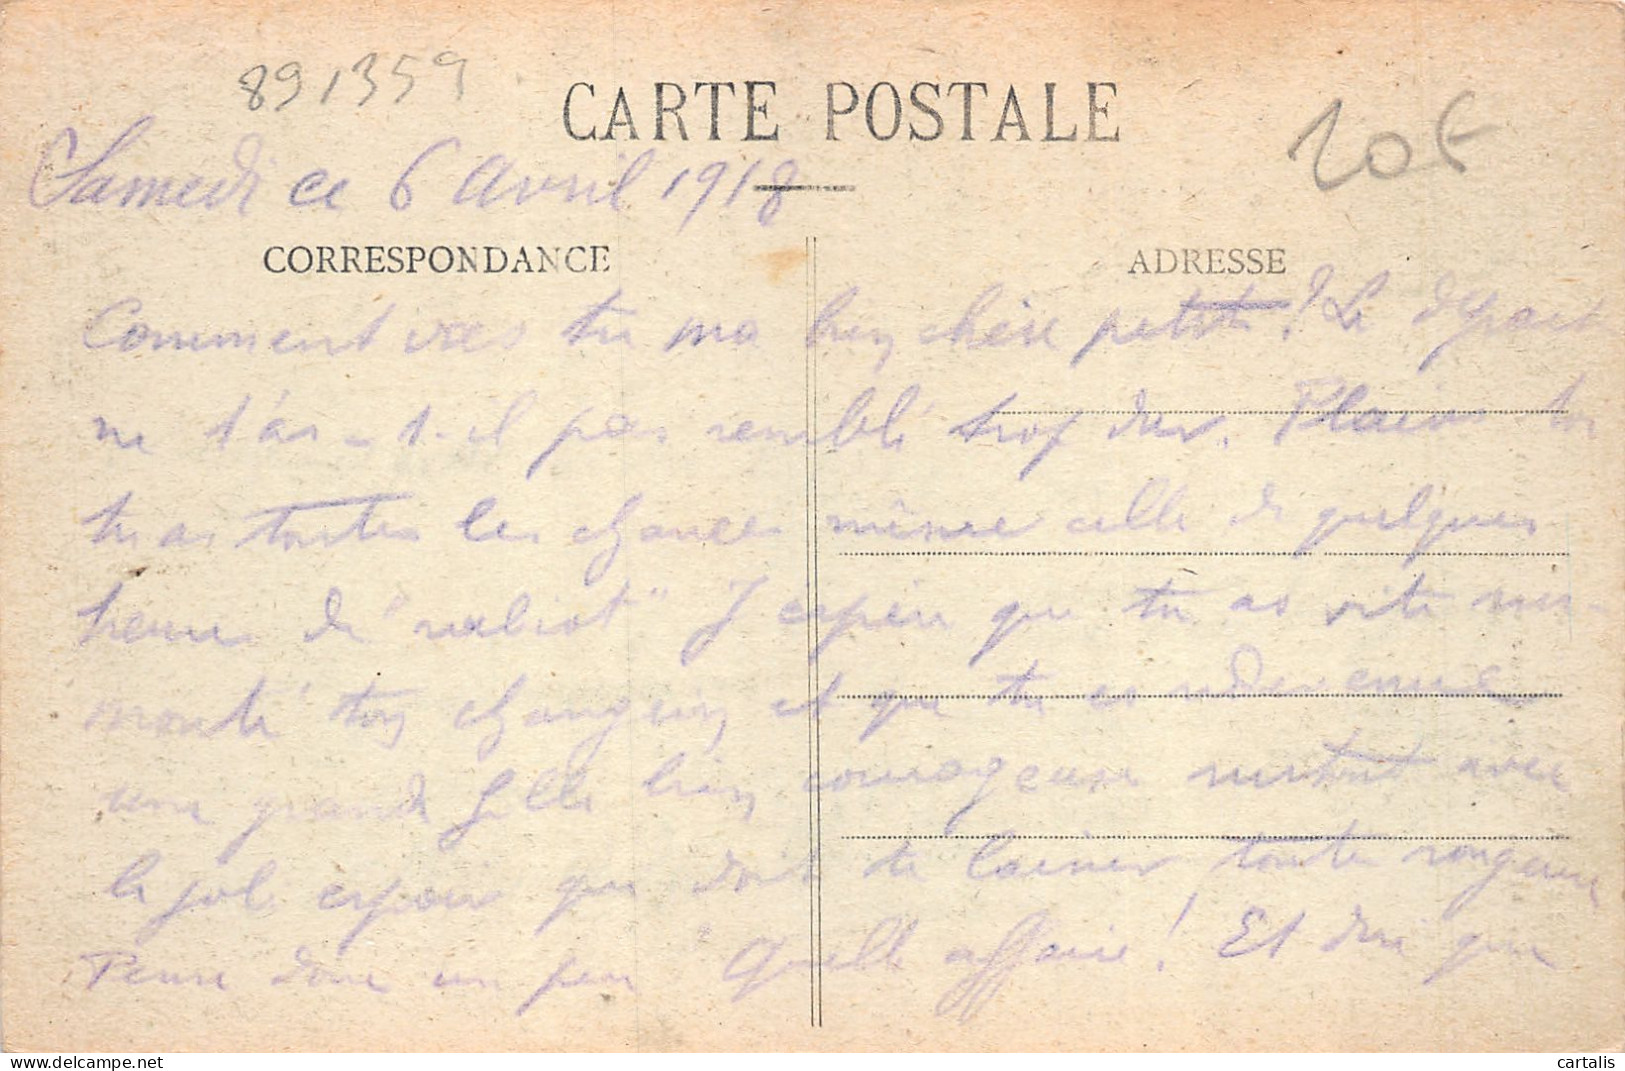 891359
CARTE POSTALE
20F
Samedi ce 6 Avril 1918
CORRESPONDANCE
ADRESSE
Comment vas tu ma bien chère petite? Le départ
ne t'as-t-il pas semblé trop dur. Plains toi
tu as toutes les chances même celle de quelques
heures de J'espère que tu as vite sur-
monté ton chagrin et que tu es redevenue
une grande fille bien courageuse surtout avec
le joli espoir que doit te laisser toute
Pense donc un peu Quelle affaire! Et dire que
cartalis